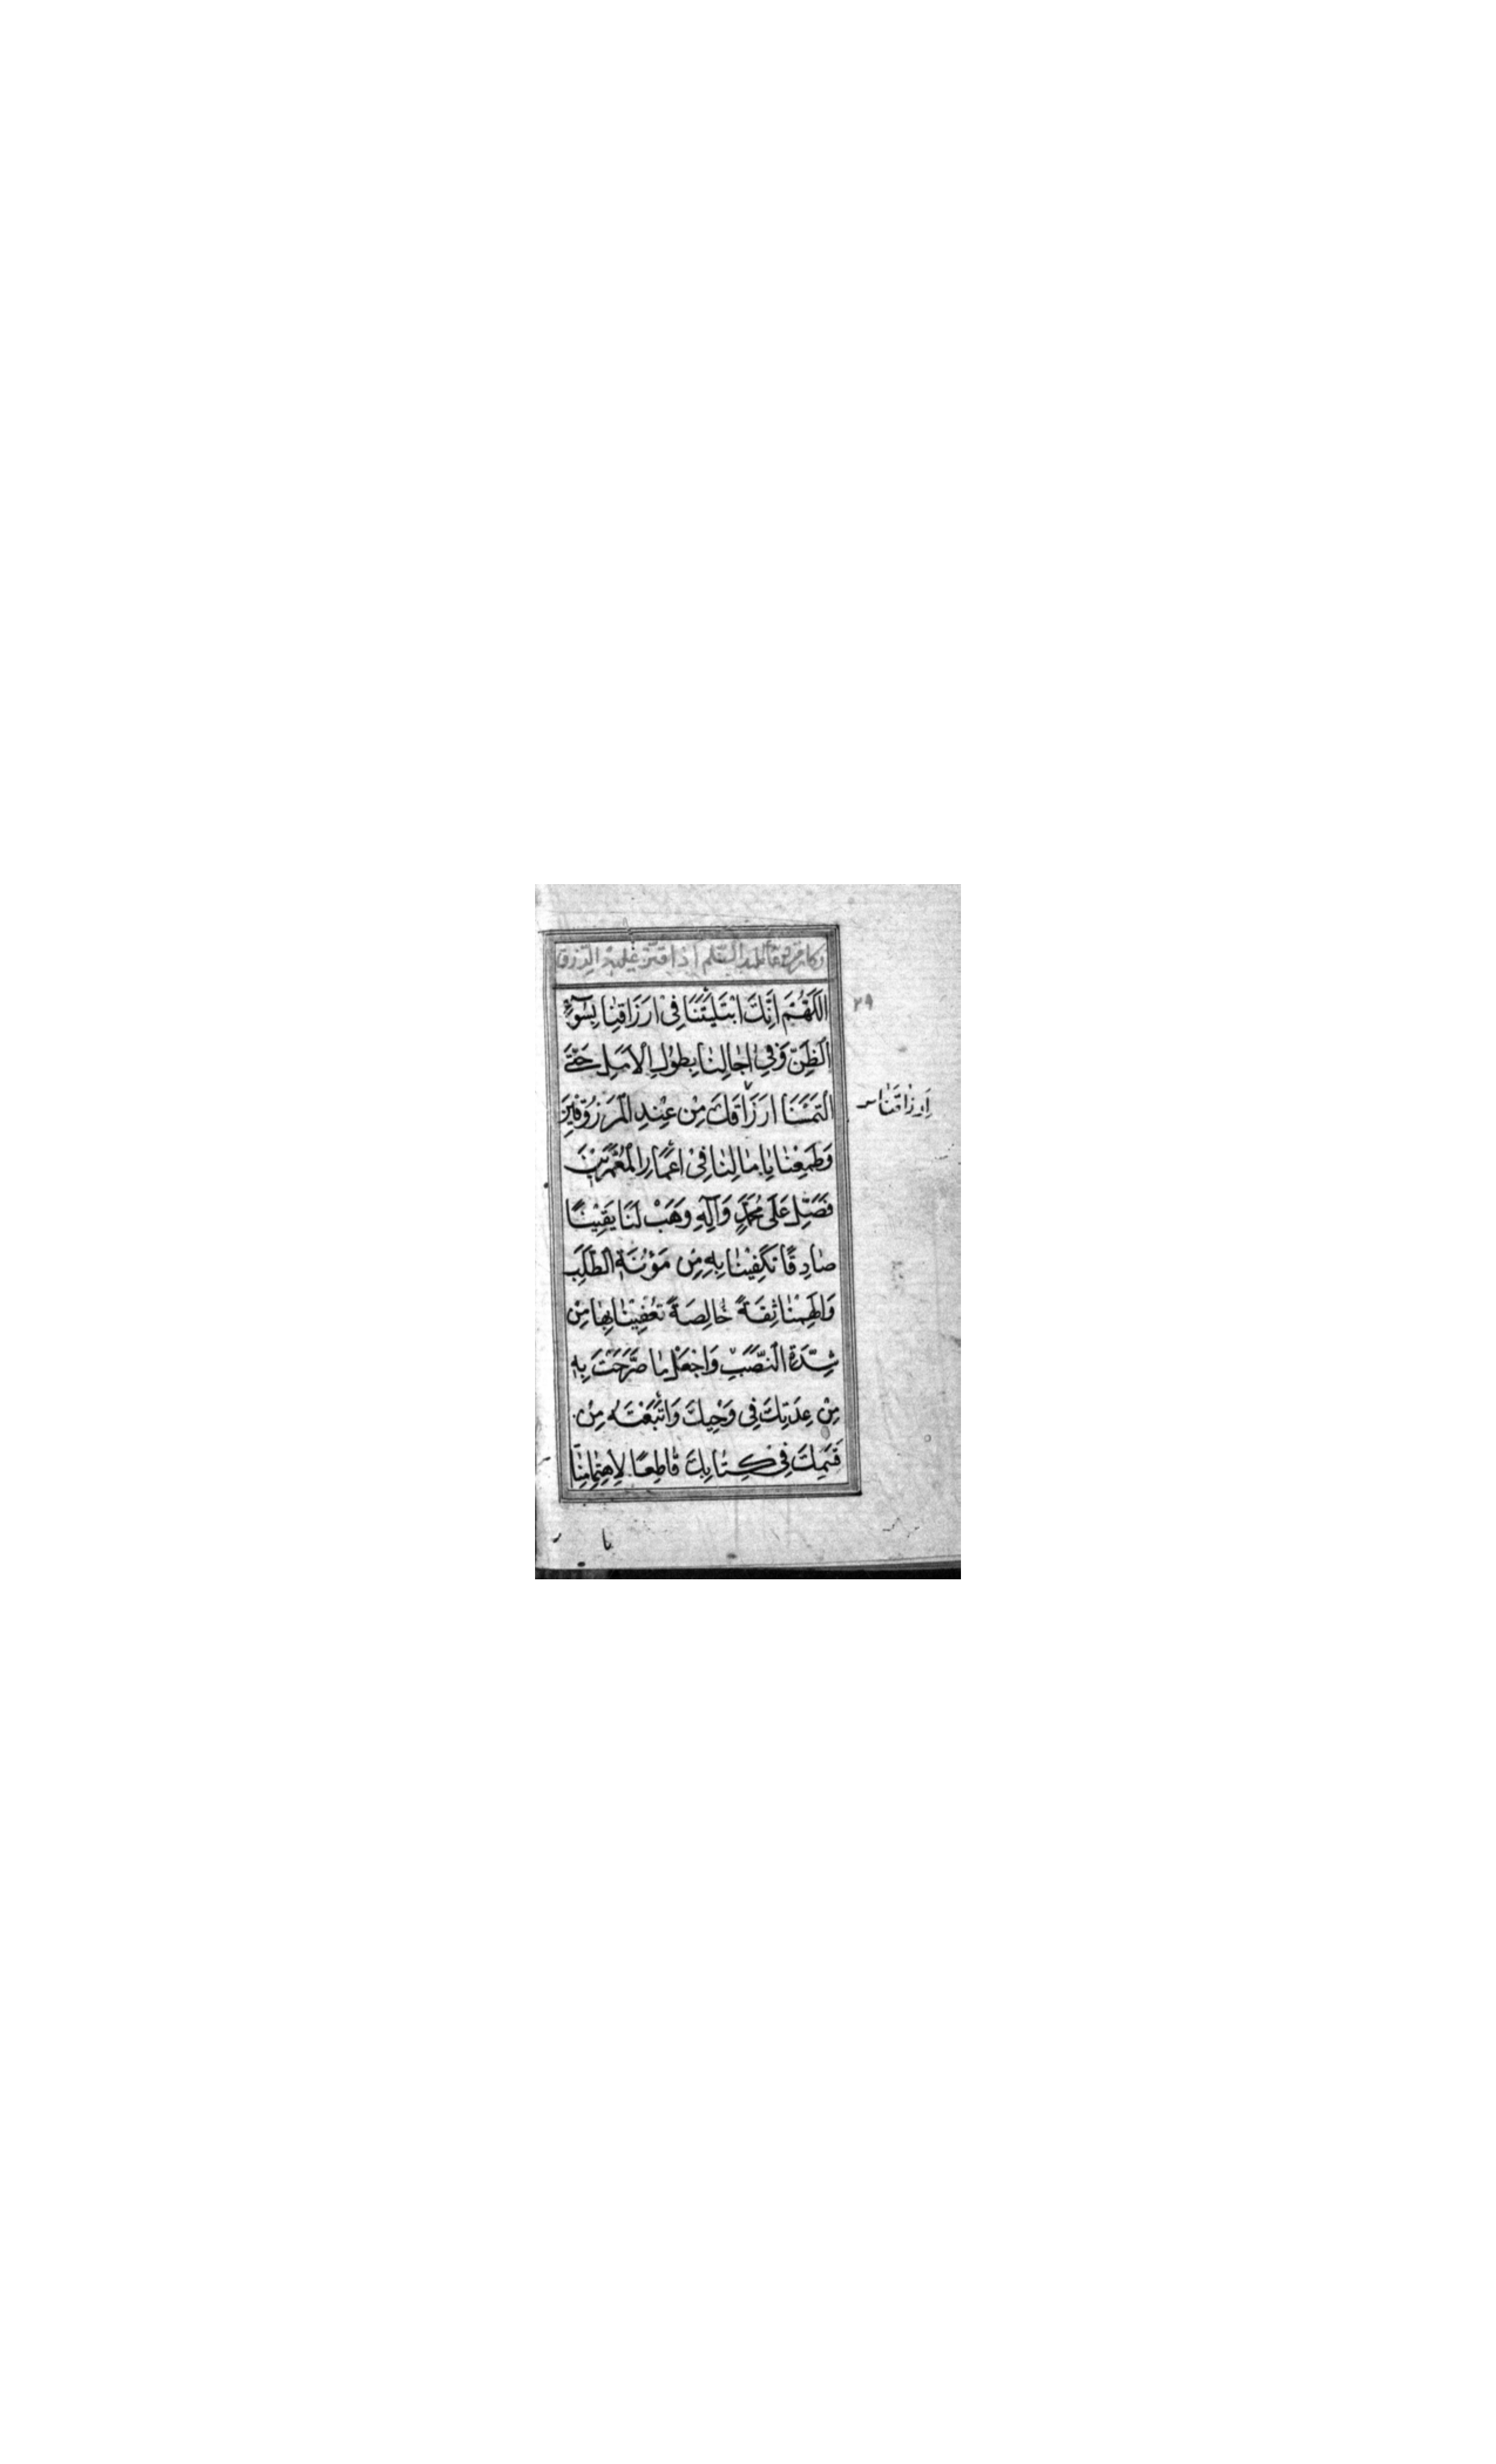 وكان من دعائه عليه السلم اذا قتر عليه الرزق
اَللّهُمَّ اِنَّكَ ابْتَلَيْتَنَا فِى اَرْزَاقِنَا بِسُوۤءِ
٢٩
الظَّنِّ وَفِى اٰجَالِنَا بِطُوْلِ الْاَمَلِ حَتّىٰ
الْتَمَسْنَا اَرْزَاقَكَ مِنْ عِنْدِ الْمَرْزُوْقِيْنَ
اَرْزَاقَنَا
وَطَمِعْنَا بِاٰمَالِنَا فِىْ اَعْمَارِ الْمُعَمَّرِيْنَ
فَصَلِّ عَلَى مُحَمَّدٍ وَآلِهِ وَهَبْ لَنَا يَقِيْنًا
صَادِقًا تَكْفِيْنَا بِهِ مِنْ مَؤُنَةِ الطَّلَبِ
وَاَلْهِمْنَا ثِقَةً خَالِصَةً تُعْفِيْنَا بِهَا مِنْ
شِدَّةِ النَّصَبِ وَاجْعَلْ مَا صَرَّحْتَ بِهِ
مِنْ عِدَتِكَ فِى وَحْيِكَ وَاَتْبَعْتَهُ مِنْ
قَسَمِكَ فِىْ كِتَابِكَ قَاطِعًا لِاهْتِمَامِنَا